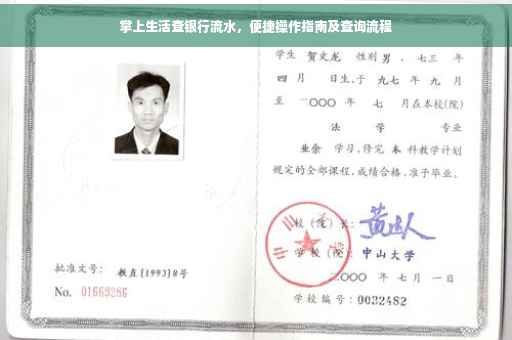 掌上生活查银行流水，便捷操作指南及查询流程
学生 贺文龙 性别 男，七三 年
四 月 日生，于 九七 年 九 月
至 二〇〇〇 年 七 月在本校(院)
法 学 专业
业余 学习，修完 本 科教学计划
规定的全部课程，成绩合格，准予毕业。
校（院）长：
学校（院）：中山大学
二〇〇〇 年 七 月 一 日
批准文号：教直[1993]8号
No. 01669286
学校编号：0032482